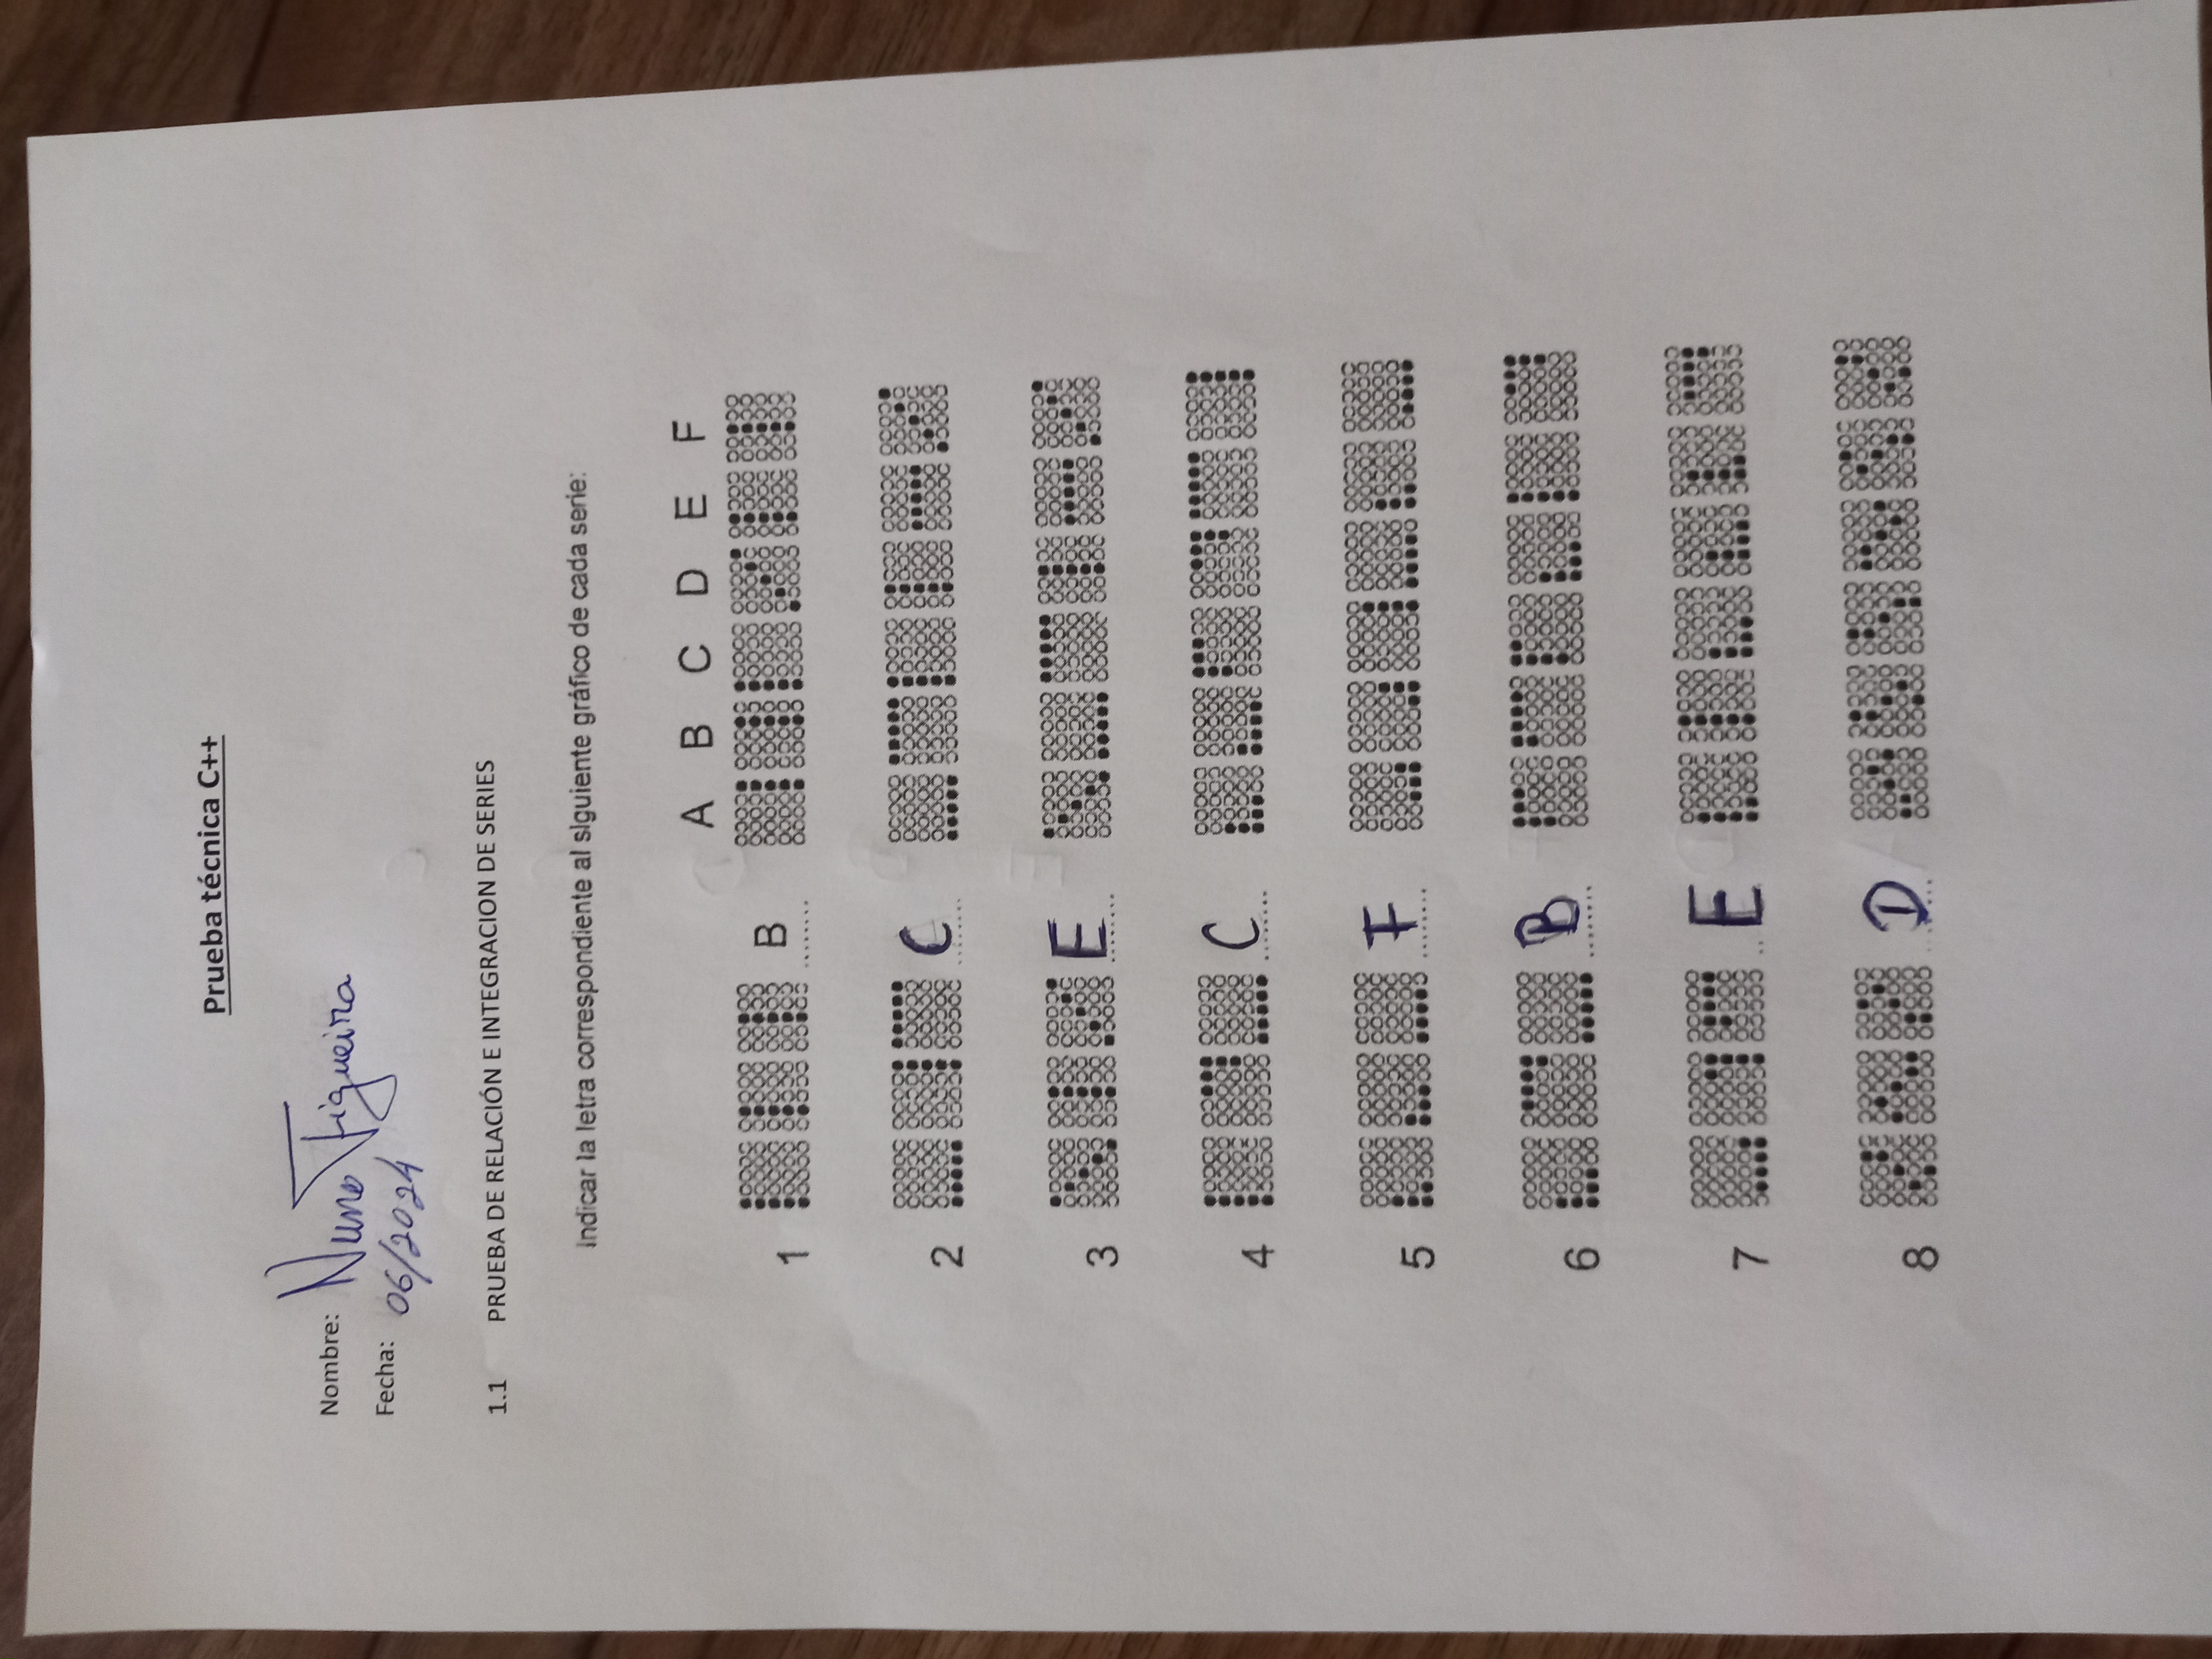 Prueba técnica C++
Nombre: Nuno Figueira
Fecha: 06/2024
1.1 PRUEBA DE RELACIÓN E INTEGRACION DE SERIES
Indicar la letra correspondiente al siguiente gráfico de cada serie:
A B C D E F
1 B
2 C
3 E
4 C
5 F
6 B
7 E
8 D